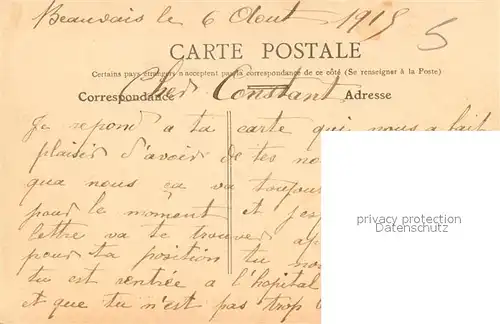 Beauvais le 6 Aout 1915 5
CARTE POSTALE
Certains pays étrangers n'acceptent pas la correspondance de ce côté (Se renseigner à la Poste)
Correspondance Adresse
Cher Constant
Je repond a ta carte qui nous a fait
plaisir d'avoir de tes no
qua nous ça va toujour
pour le moment et j'es
lettre va te trouver
pour ta position tu
tu est rentrée a l'hopital
et que tu n'est pas trop
privacy protection
Datenschutz